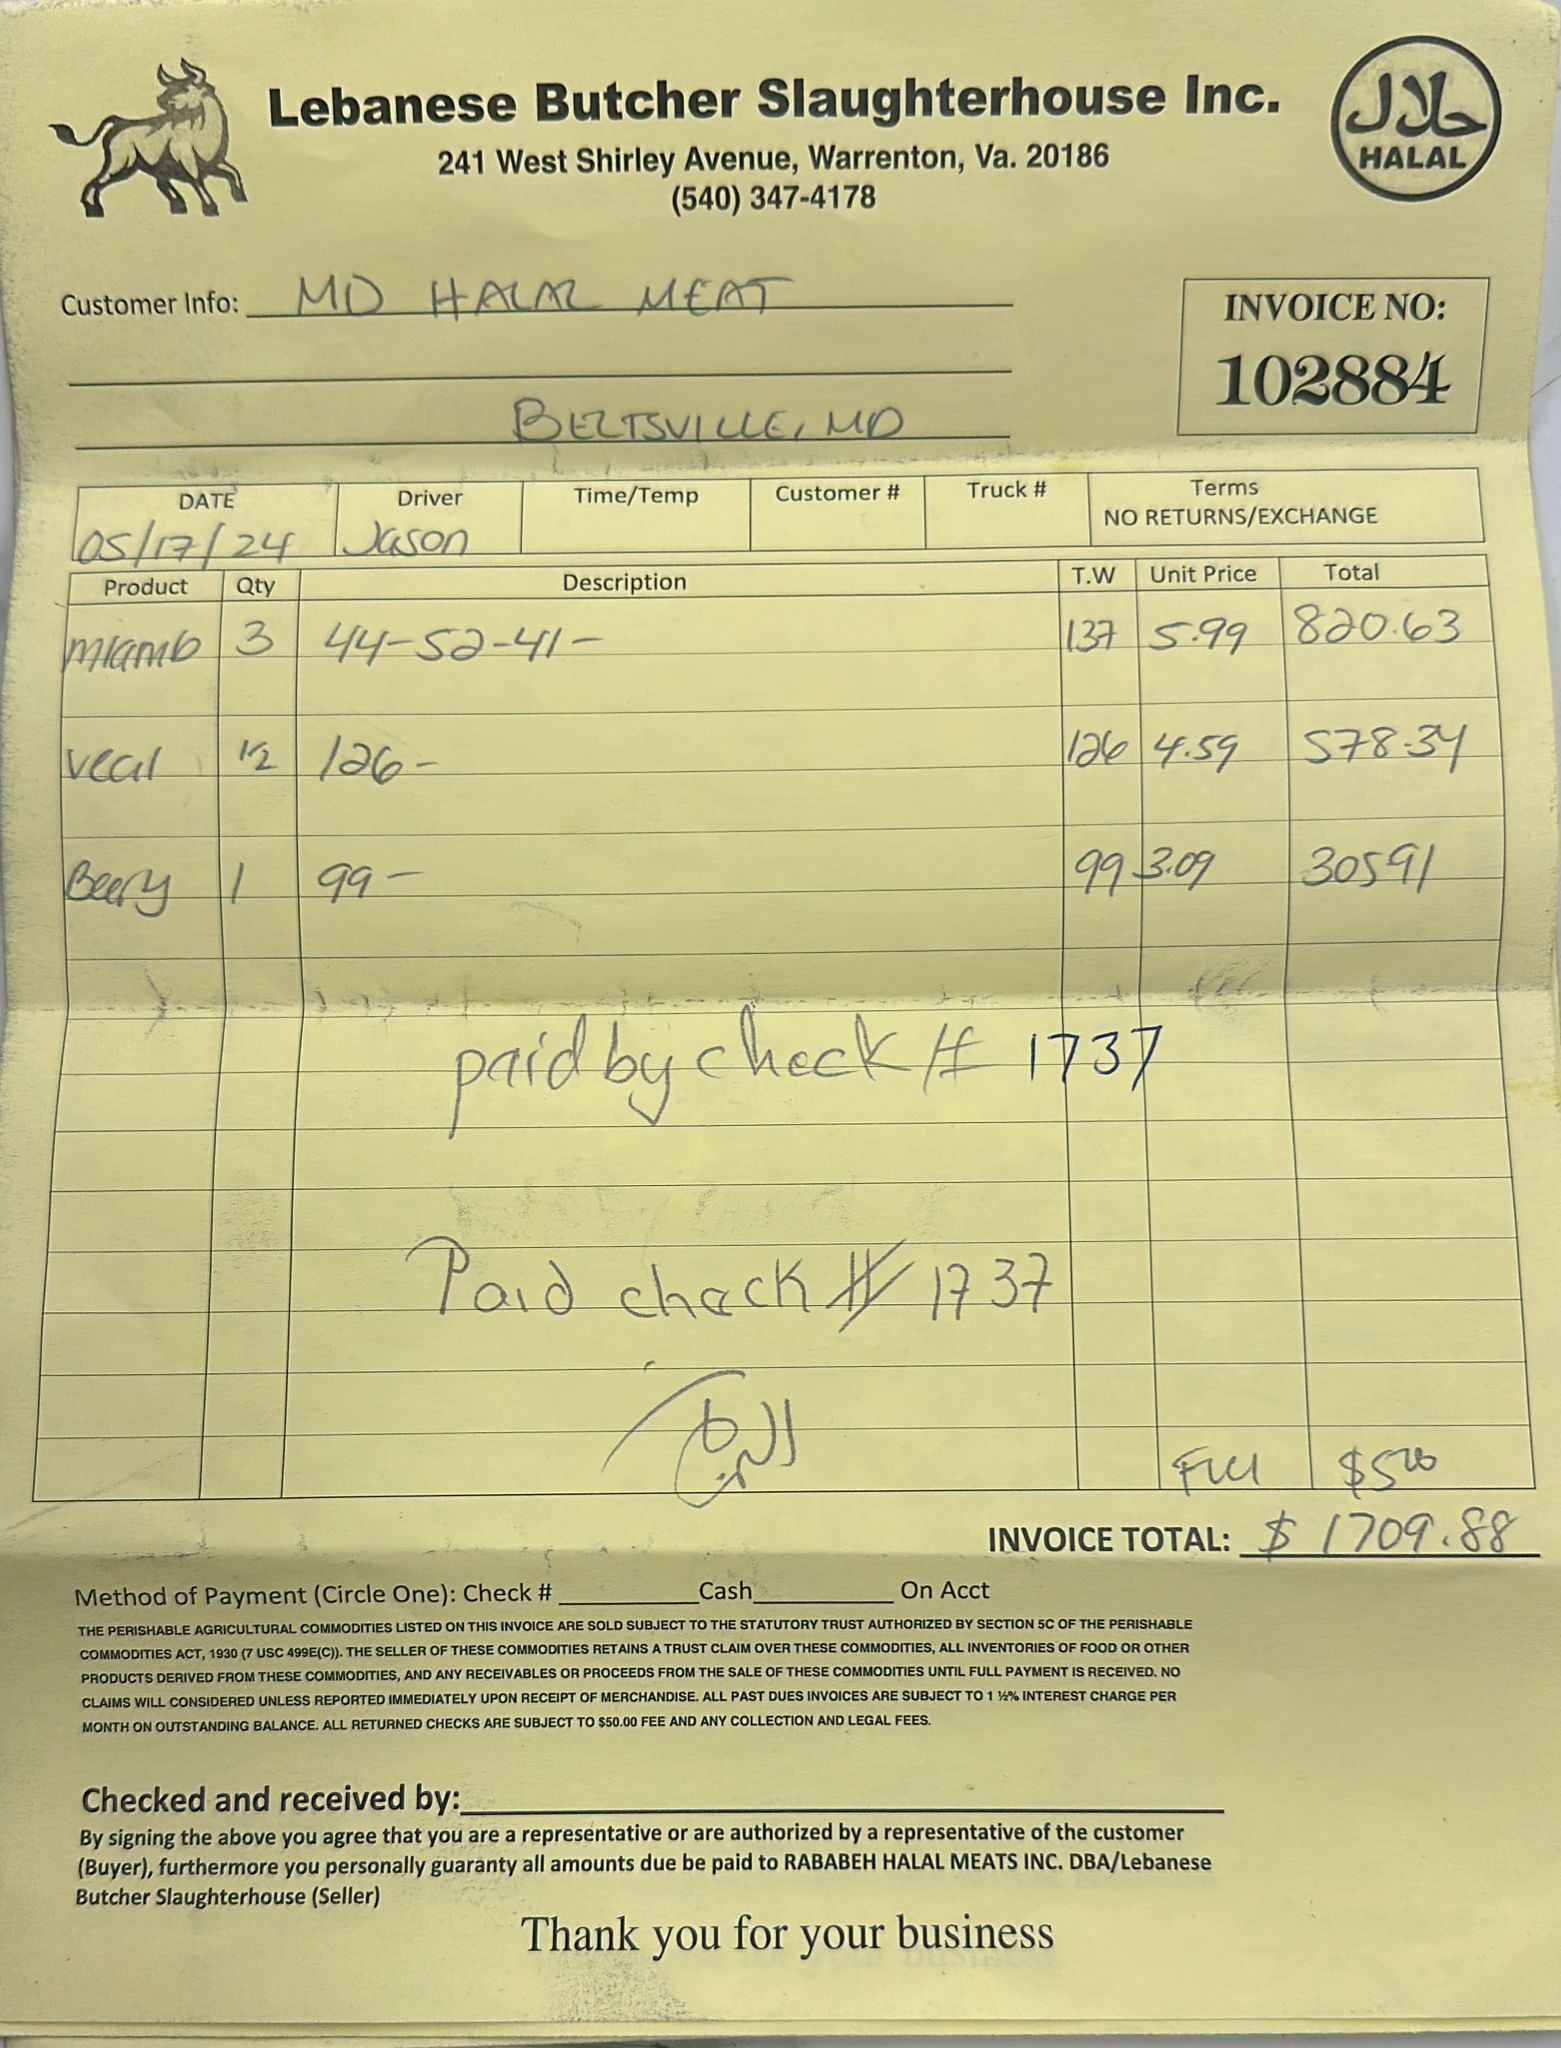 Lebanese Butcher Slaughterhouse Inc.
241 West Shirley Avenue, Warrenton, Va. 20186
(540) 347-4178
حلال
HALAL
Customer Info: MD HALAL MEAT
BELTSVILLE, MD
INVOICE NO:
102884
DATE Driver Time/Temp Customer # Truck # Terms
NO RETURNS/EXCHANGE
05/17/24 Jason
Product Qty Description T.W Unit Price Total
mlamb 3 44-52-41- 137 5.99 820.63
veal 1/2 126- 126 4.59 578.34
1 99- 99 3.09 305 91
paid by check # 1737
Paid check # 1737
$5.00
INVOICE TOTAL: $ 1709.88
Method of Payment (Circle One): Check # Cash On Acct
THE PERISHABLE AGRICULTURAL COMMODITIES LISTED ON THIS INVOICE ARE SOLD SUBJECT TO THE STATUTORY TRUST AUTHORIZED BY SECTION 5C OF THE PERISHABLE
COMMODITIES ACT, 1930 (7 USC 499E(C)). THE SELLER OF THESE COMMODITIES RETAINS A TRUST CLAIM OVER THESE COMMODITIES, ALL INVENTORIES OF FOOD OR OTHER
PRODUCTS DERIVED FROM THESE COMMODITIES, AND ANY RECEIVABLES OR PROCEEDS FROM THE SALE OF THESE COMMODITIES UNTIL FULL PAYMENT IS RECEIVED. NO
CLAIMS WILL CONSIDERED UNLESS REPORTED IMMEDIATELY UPON RECEIPT OF MERCHANDISE. ALL PAST DUES INVOICES ARE SUBJECT TO 1 ½% INTEREST CHARGE PER
MONTH ON OUTSTANDING BALANCE. ALL RETURNED CHECKS ARE SUBJECT TO $50.00 FEE AND ANY COLLECTION AND LEGAL FEES.
Checked and received by:
By signing the above you agree that you are a representative or are authorized by a representative of the customer
(Buyer), furthermore you personally guaranty all amounts due be paid to RABABEH HALAL MEATS INC. DBA/Lebanese
Butcher Slaughterhouse (Seller)
Thank you for your business